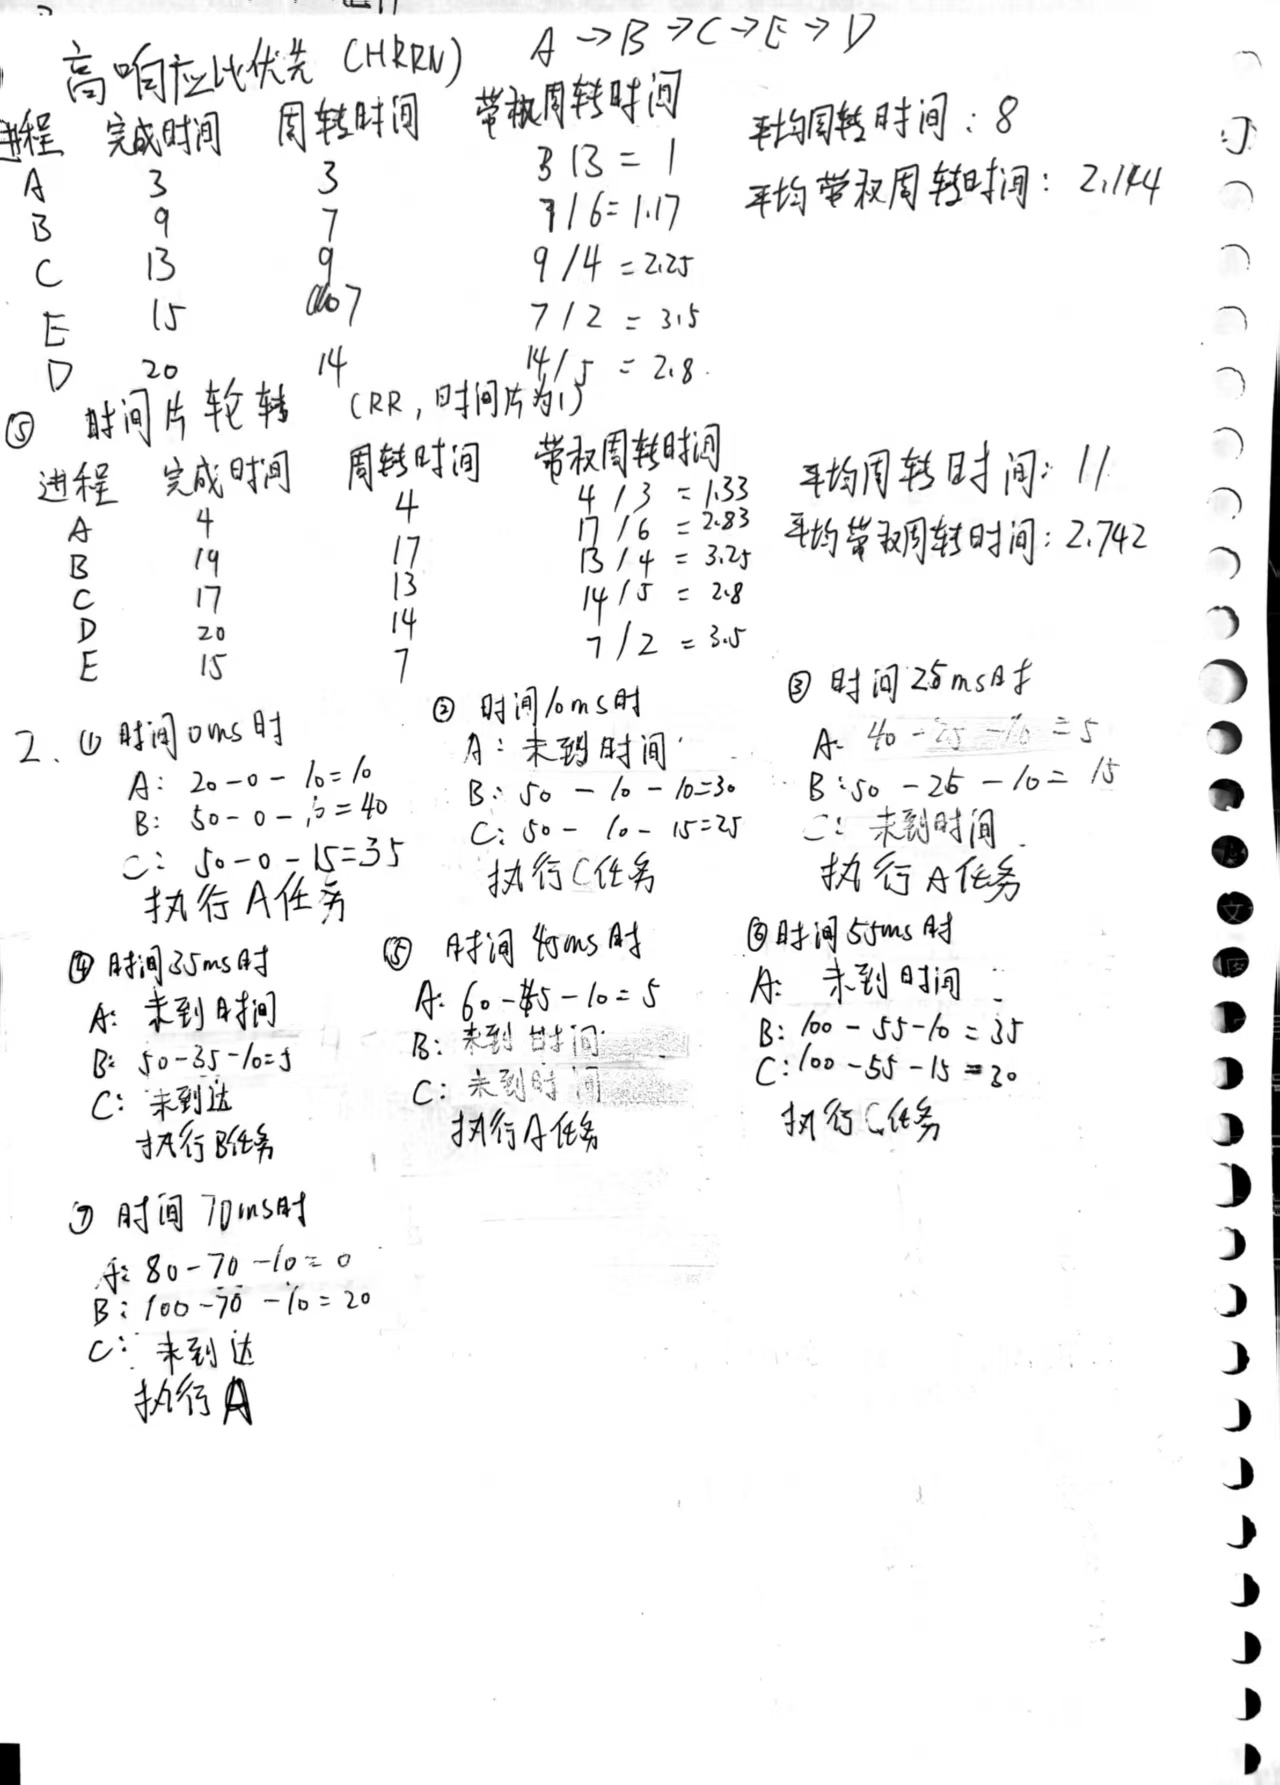 高响应比优先 (HRRN) A→B→C→E→D
进程 完成时间 周转时间 带权周转时间
A 3 3 3/3=1
B 9 7 7/6=1.17
C 13 9 9/4=2.25
E 15 7 7/2=3.5
D 20 14 14/5=2.8
平均周转时间:8
平均带权周转时间:2.144
⑤ 时间片轮转 (RR,时间片为1)
进程 完成时间 周转时间 带权周转时间
A 4 4 4/3=1.33
B 19 17 17/6=2.83
C 17 13 13/4=3.25
D 20 14 14/5=2.8
E 15 7 7/2=3.5
平均周转时间:11
平均带权周转时间:2.742
2. ① 时间0ms时
A: 20-0-10=10
B: 50-0-10=40
C: 50-0-15=35
执行A任务
② 时间10ms时
A:未到时间
B: 50-10-10=30
C: 50-10-15=25
执行C任务
③ 时间25ms时
A: 40-25-10=5
B:50-25-10=15
C: 未到时间
执行A任务
④ 时间35ms时
A: 未到时间
B: 50-35-10=5
C: 未到达
执行B任务
⑤ 时间45ms时
A: 60-45-10=5
B: 未到时间
C: 未到时间
执行A任务
⑥时间55ms时
A: 未到时间
B: 100-55-10=35
C:100-55-15=30
执行C任务
⑦ 时间70ms时
A: 80-70-10=0
B:100-70-10=20
C: 未到达
执行A